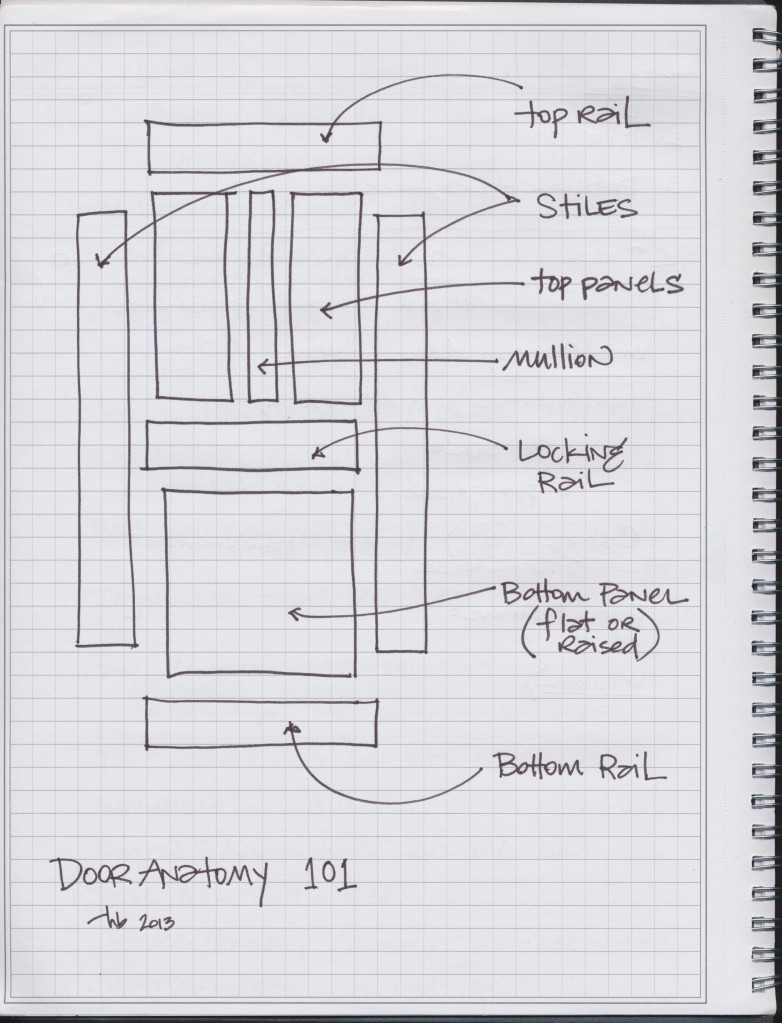 top Rail
Stiles
top panels
mullion
Locking
Rail
Bottom Panel
(flat or
Raised)
Bottom Rail
Door Anatomy 101
thb 2013